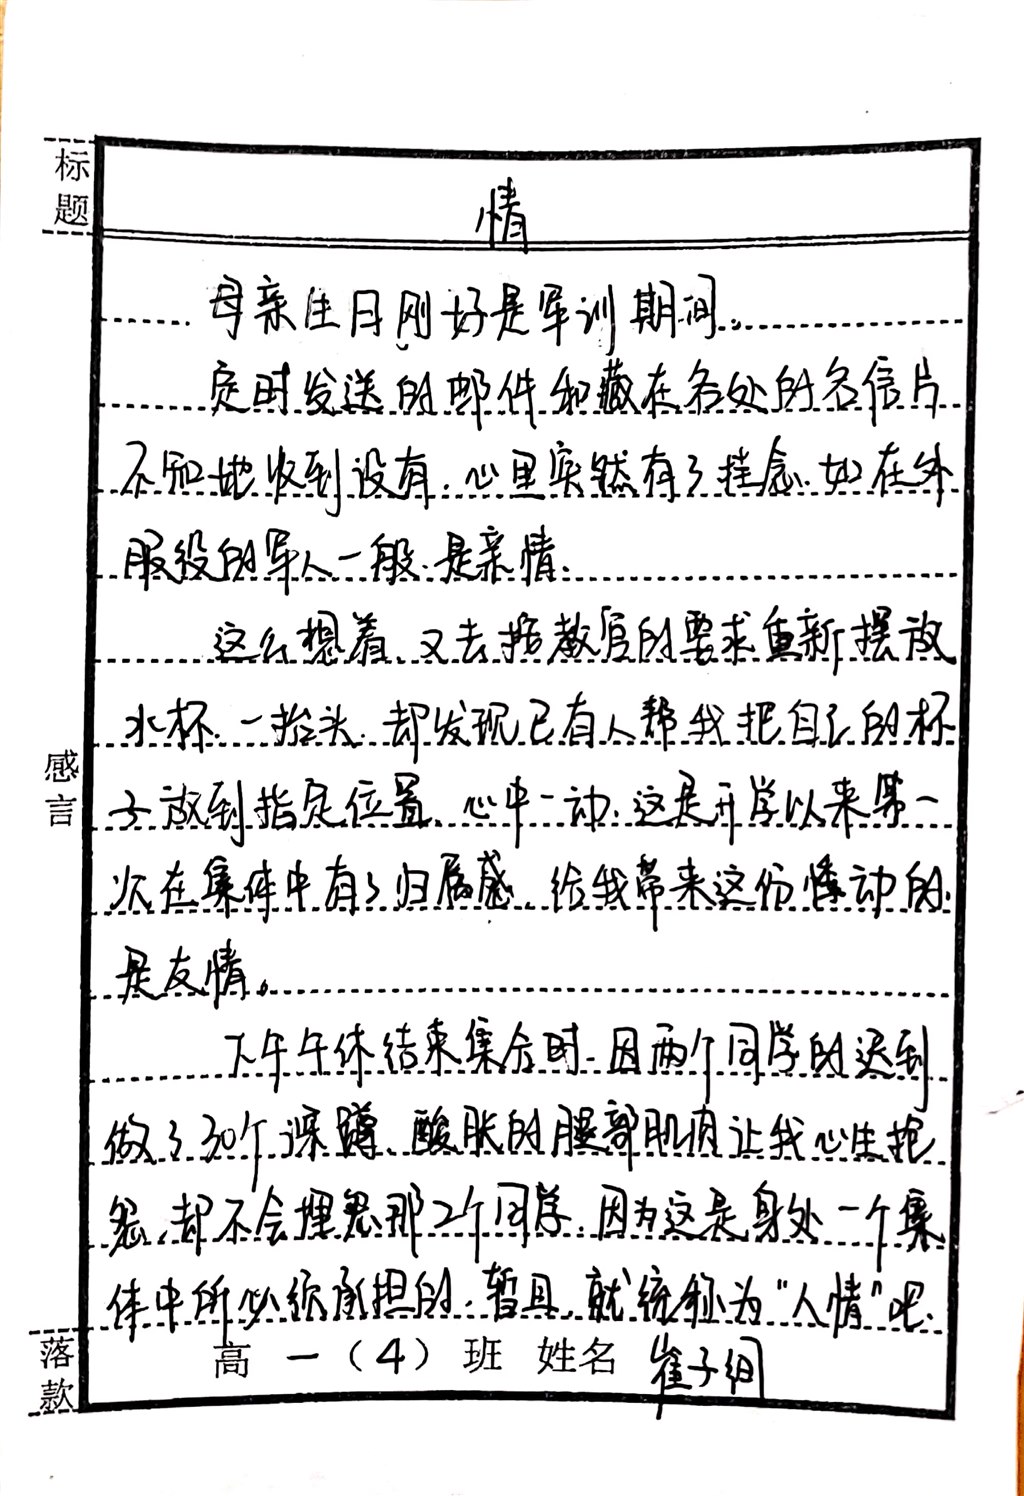 标题
情
母亲生日刚好是军训期间。
定时发送的邮件和藏在各处的名信片
不知她收到没有，心里突然有了挂念，如在外
服役的军人一般，是亲情，
这么想着，又去按教官的要求重新摆放
水杯，一抬头，却发现已有人帮我把自己的杯
子放到指定位置，心中一动，这是开学以来第一
次在集体中有了归属感，给我带来这份悸动的，
是友情。
下午午休结束集合时，因两个同学的迟到
做了30个深蹲，酸胀的腿部肌肉让我心生抱
怨，却不会埋怨那2个同学，因为这是身处一个集
体中所必须承担的，暂且，就统称为“人情”吧，
感言
落款
高一（4）班 姓名 崔子